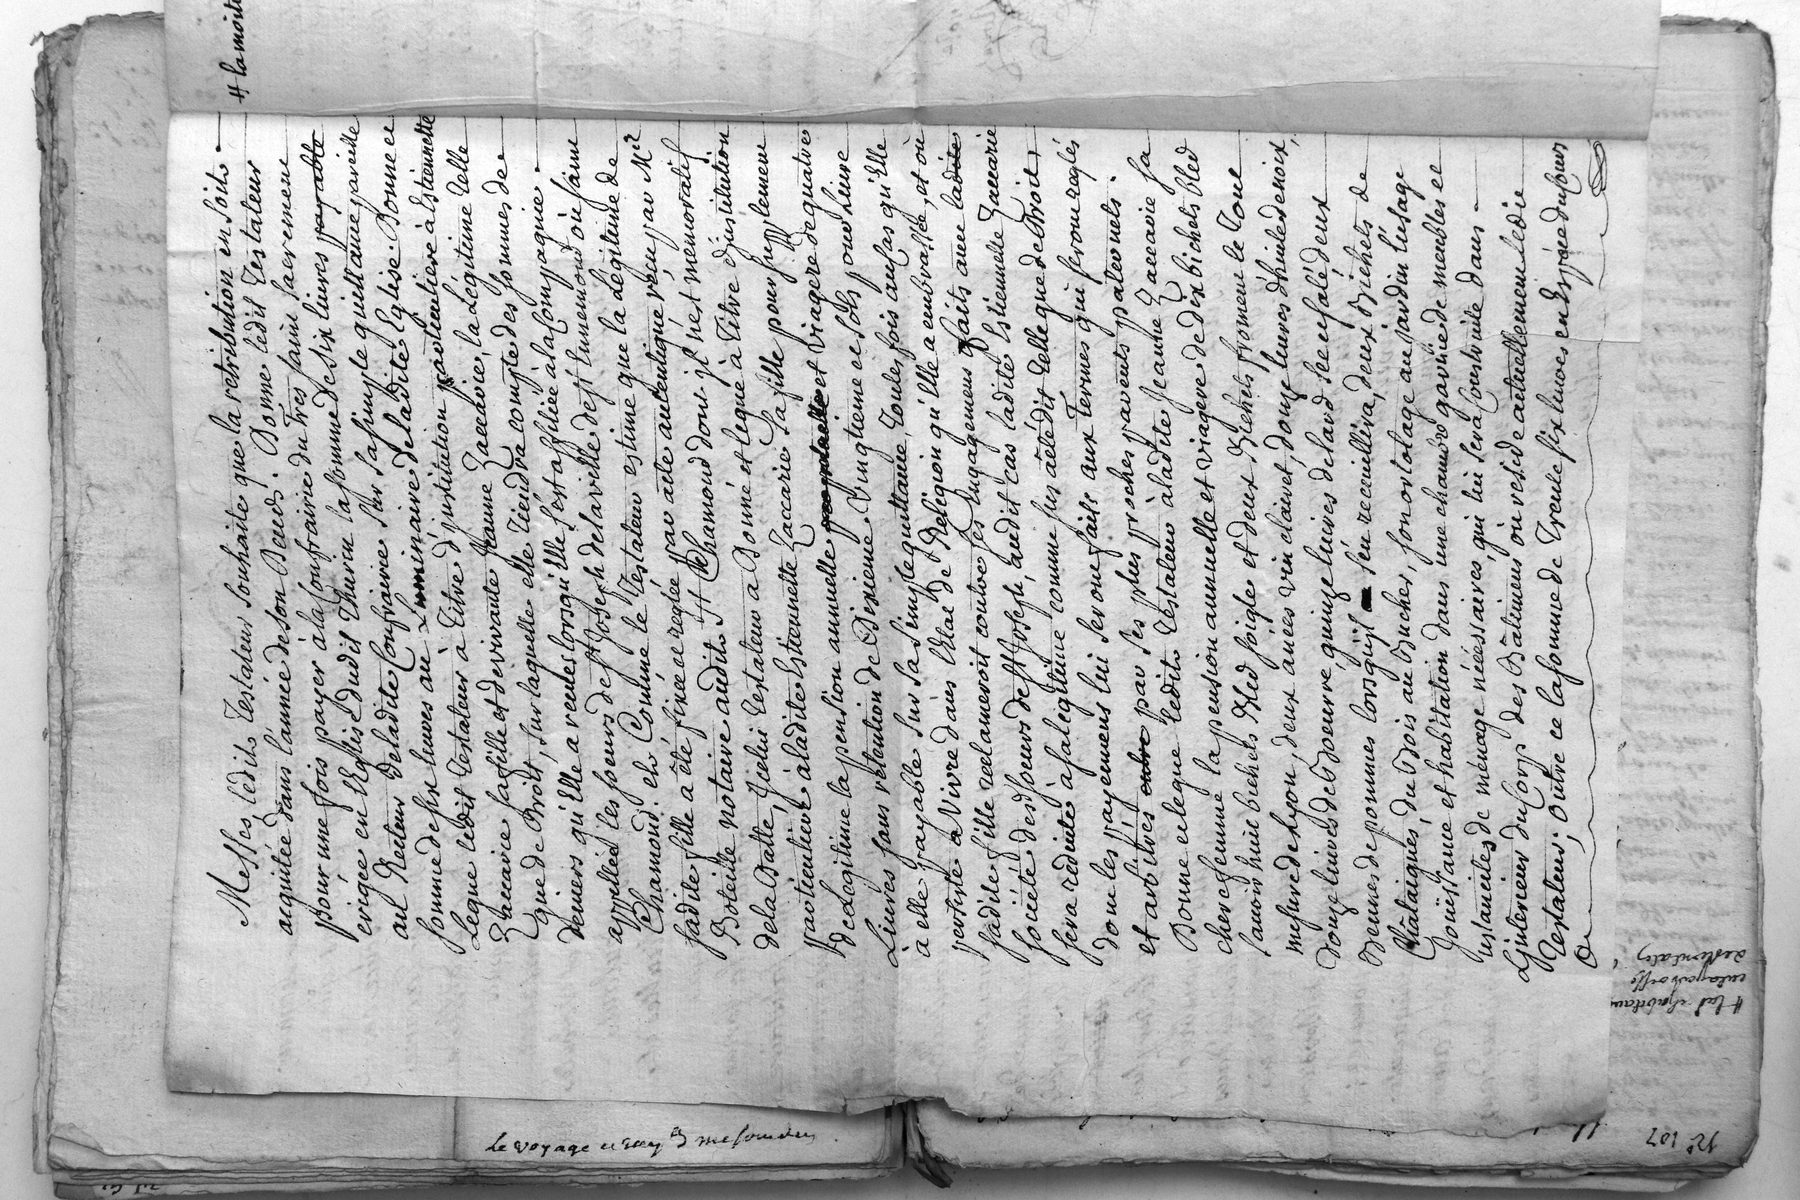 Messes, ledit Testateur souhaite que la retribution en soit
acquittée dans l'année de son Deced. Donne ledit Testateur
pour une fois payer à la Confrairie du Tres saint Sacrement
erigée en l'Eglise dudit Thurin la somme de six livres payable
au Recteur de ladite Confrairie sur sa simple quittance, pareille
somme de six livres au Luminaire de ladite Eglise. Donne et
Legue ledit Testateur à Titre d'institution particuliere à Estiennette
Zaccarie sa fille et de vivante Jeanne Zaccarie, la Légitime telle
que de Droit, sur laquelle elle Tiendra compte des sommes de
deniers qu'elle a reçues lorsqu'elle s'est affiliée à la Compagnie
appellée les soeurs de St Joseph de la ville de St Chamond où sa
Chamond. et Comme le Testateur estime que la légitime de
sadite fille a été fixée et reglée par acte autentique reçu par Me
Boteille notaire audit St Chamond dont il n'est memoratif
de la Datte, Icelui testateur a Donné et legue à Titre d'institution
particuliere à ladite Estiennette Zaccarie sa fille pour supplement
de Legitime la pension annuelle et viagere de quatre
Livres sans retention de Dixieme, vingtieme et sols pour Livre
à elle payable sur sa simple quittance, Toutes fois au cas qu'elle
persiste à Vivre dans l'Etat de Religion qu'elle a embrassée, et où
sadite fille reclameroit contre ses Engagemens faits avec ladite
societé desd. soeurs de St Joseph, audit cas ladite Estiennette Zaccarie
sera reduite à sa legitime comme sus a été dit telle que de Droit,
dont les payemens lui seront faits aux Termes qui seront reglés
et arbitrés par ses plus proches parents paternels.
Donne et legue ledit Testateur à ladite Jeanne Zaccarie sa
chere femme la pension annuelle et viagere de dix bichets bled
savoir huit bichets Bled soigle et deux Bichets froment le Tout
mesure de Lyon, deux anées vin clairet, douze livres d'huile de noix,
douze livres de Beurre, quinze livres de lard sec ensalé, deux
Bennes de pommes lorsqu'il s'en recueillira, deux Bichets de
Chataignes, du Bois au Bucher, son ostolage au jardin l'usage
Jouissance et habitation dans une chambre garnie de meubles et
Ustanciles de menage nécéssaires, qui lui sera construite dans
L'interieur du Corps des Bâtiments où reside actuellement ledit
Testateur; Outre ce la somme de Trente six livres en Espéce du Cours
# la moitié
Le voyage
No 107